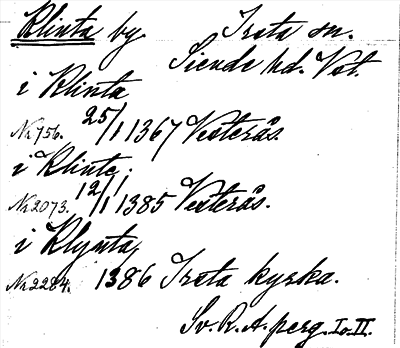 Klinta by. Irsta sn.
Siende hd. Vst.
i Klinta
No 756. 25/1 1367 Vesterås.
i Klinte,
No 2073. 12/1 1385 Vesterås.
i Klynta
No 2284. 1386 Irsta kyrka.
Sv. R. A. perg. I o. II.